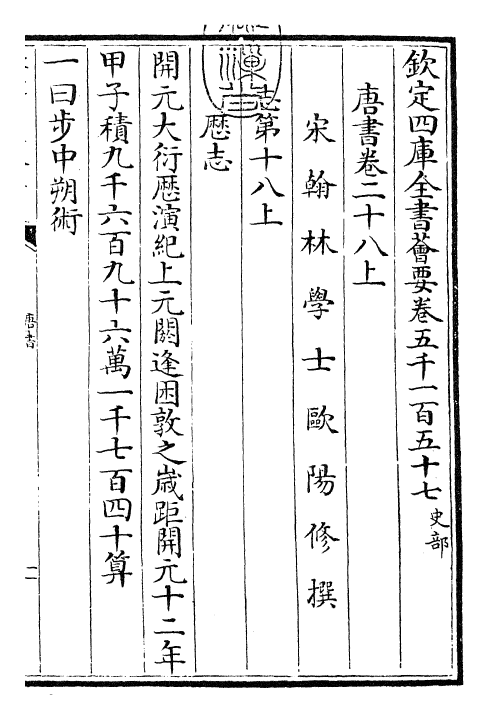 欽定四庫全書薈要卷五千一百五十七 史部
唐書卷二十八上
宋翰林學士歐陽修撰
志第十八上
厯志
開元大衍厯演紀上元閼逢困敦之歲距開元十二年
甲子積九千六百九十六萬一千七百四十算
一曰步中朔術
唐書
二